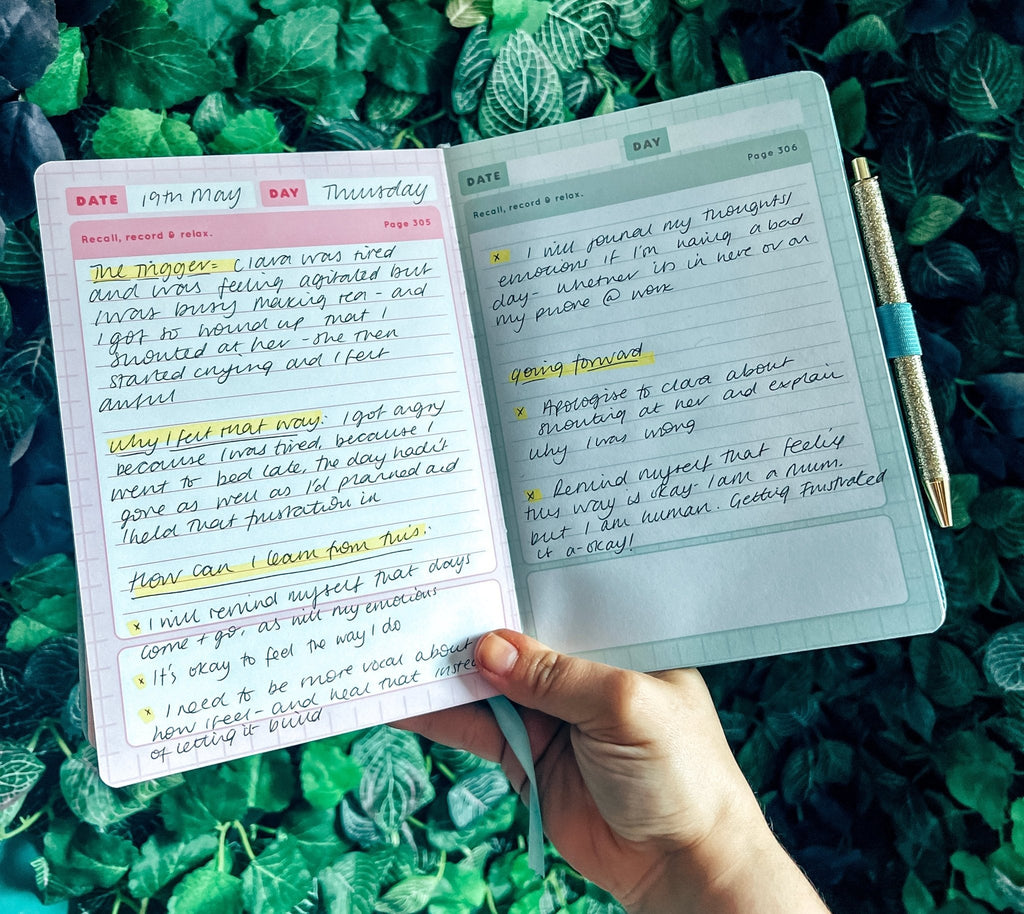 DATE 19th May DAY Thursday
Recall, record & relax. Page 305
The Trigger= Clara was tired
and was feeling agitated but
I was busy making tea - and
I got so wound up that I
shouted at her - she then
started crying and I felt
awful
Why I felt that way: I got angry
because I was tired, because I
went to bed late, the day hadn't
gone as well as I'd planned and
I held that frustration in
How can I learn from this:
x I will remind myself that days
come + go, as will my emotions
x It's okay to feel the way I do
x I need to be more vocal about
how I feel - and heal that
of letting it build
DATE DAY
Recall, record & relax. Page 306
x I will journal my thoughts/
emotions if I'm having a bad
day - whether its in here or on
my phone @ work
going forward
x Apologise to Clara about
shouting at her and explain
why I was wrong
x Remind myself that feeling
this way is okay - I am a mum.
but I am human. Getting frustrated
is a-okay!